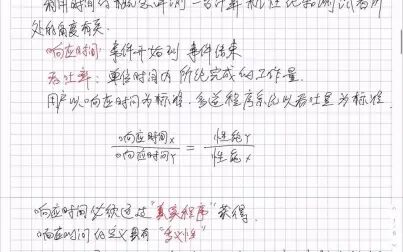 利用时间的概念评测一台计算机性能和测试者所
处的角度有关.
响应时间: 事件开始到事件结束
吞吐率: 单位时间内所能完成的工作量.
用户以响应时间为标准, 多道程序系统以吞吐量为标准.
响应时间X / 响应时间Y = 性能Y / 性能X
响应时间必须通过"真实程序"获得.
响应时间的定义具有"多义性"